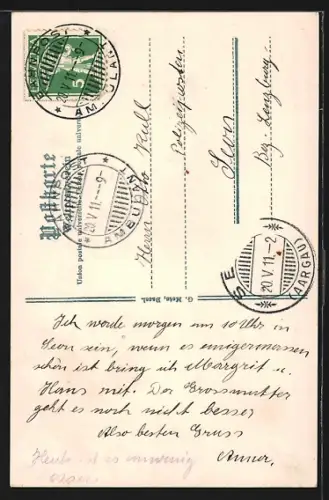 Postkarte
Union postale universelle
Herrn Otto Kull
Polizeiposten
Seon
Bez. Lenzburg
5
20 V 11 -9-
AMBULANT
20 V 11 -9-
SE
20.V.11.-2
(AARGAU)
G. Metz, Basel.
Ich werde morgen um 10 Uhr in
Seon sein, wenn es einigermassen
schön ist bring ich Margrit u.
Hans mit. Der Grossmutter
geht es noch nicht besser
Also besten Gruss
Heute ist es